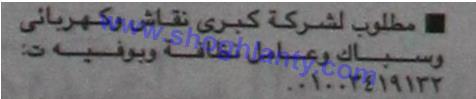 ■ مطلوب لشركة كبرى نقاش وكهربائى
وسباك وعامل نظافة وبوفيه ت:
٠١٠٠٣٤١٩١٣٢.
www.shoghlanty.com